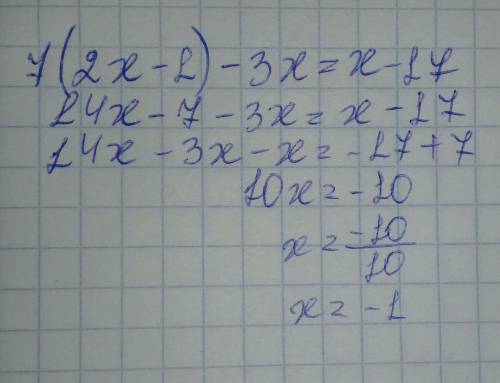 7(2x-1)-3x=x-17
14x-7-3x=x-17
14x-3x-x=-17+7
10x=-10
x=-10/10
x=-1